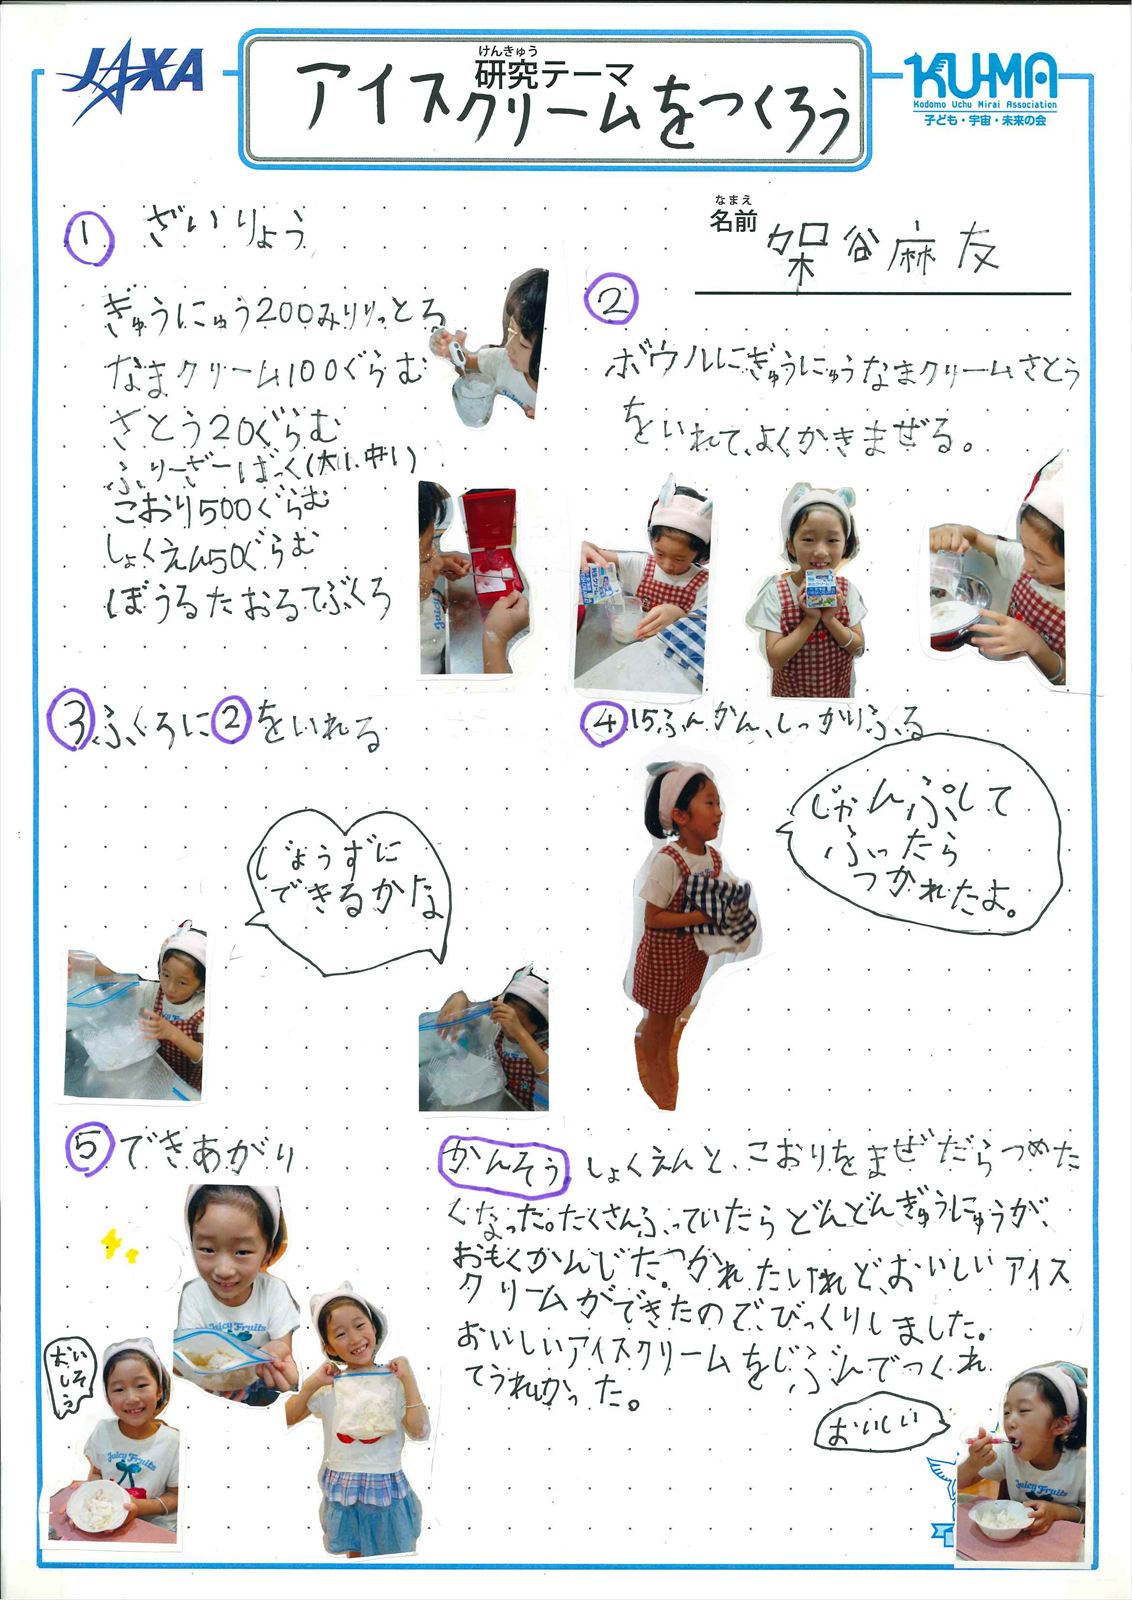 JAXA
けんきゅう
研究テーマ
アイスクリームをつくろう
KUMA
Kodomo Uchu Mirai Association
子ども・宇宙・未来の会
なまえ
名前
架谷麻友
① ざいりょう
ぎゅうにゅう200みりりっとる
なまクリーム100ぐらむ
さとう20ぐらむ
ふりーざーばっく(大1、中1)
こおり500ぐらむ
しょくえん50ぐらむ
ぼうるたおるてぶくろ
②
ボウルにぎゅうにゅうなまクリームさとう
をいれて、よくかきまぜる。
③ふくろに②をいれる
じょうずに
できるかな
④15ふんかん、しっかりふる
じゃんぷして
ふったら
つかれたよ。
⑤できあがり
おいしそう
かんそう しょくえんと、こおりをまぜだらつめた
くなった。たくさんふっていたらどんどんぎゅうにゅうが、
おもくかんじた。つかれたけれど、おいしいアイス
クリームができたので、びっくりしました。
おいしいアイスクリームをじぶんでつくれ
てうれかった。
おいしい